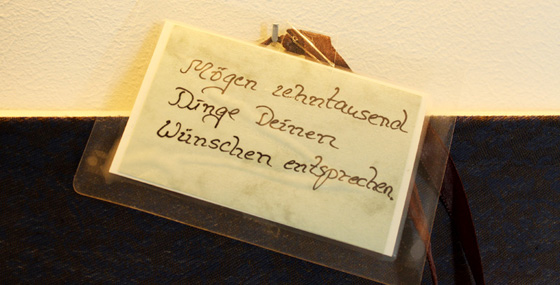 Mögen zehntausend
Dinge Deinen
Wünschen entsprechen.